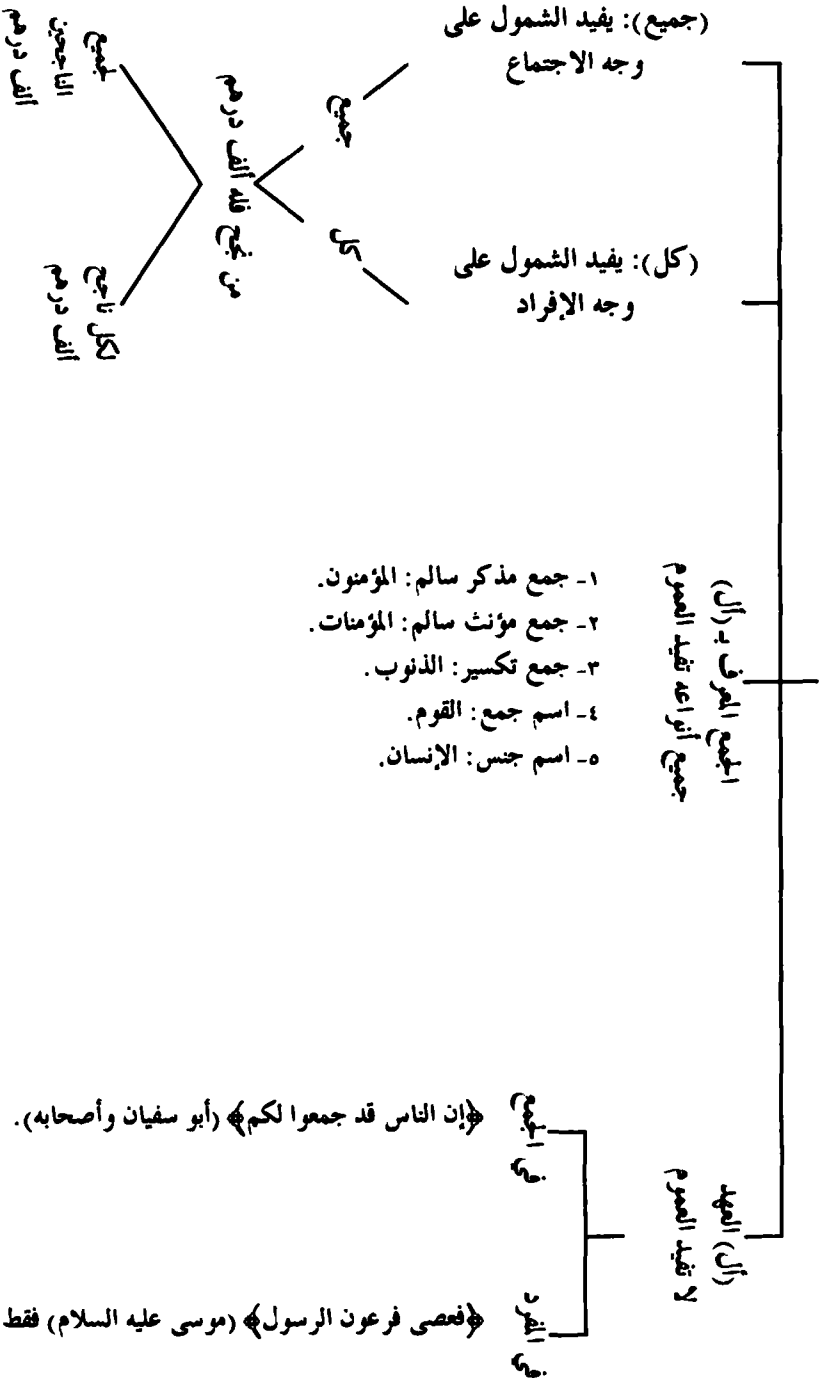 (جميع): يفيد الشمول على
وجه الاجتماع
جميع
من نجح فله ألف درهم
لجميع
الناجحين
ألف درهم
(كل): يفيد الشمول على
وجه الإفراد
كل
لكل ناجح
ألف درهم
الجمع المعرف بـ (أل)
جميع أنواعه تفيد العموم
١ـ جمع مذكر سالم: المؤمنون.
٢ـ جمع مؤنث سالم: المؤمنات.
٣ـ جمع تكسير: الذنوب.
٤ـ اسم جمع: القوم.
٥ـ اسم جنس: الإنسان.
(أل) العهد
لا تفيد العموم
في الجمع
﴿إن الناس قد جمعوا لكم﴾ (أبو سفيان وأصحابه).
في المفرد
﴿فعصى فرعون الرسول﴾ (موسى عليه السلام) فقط